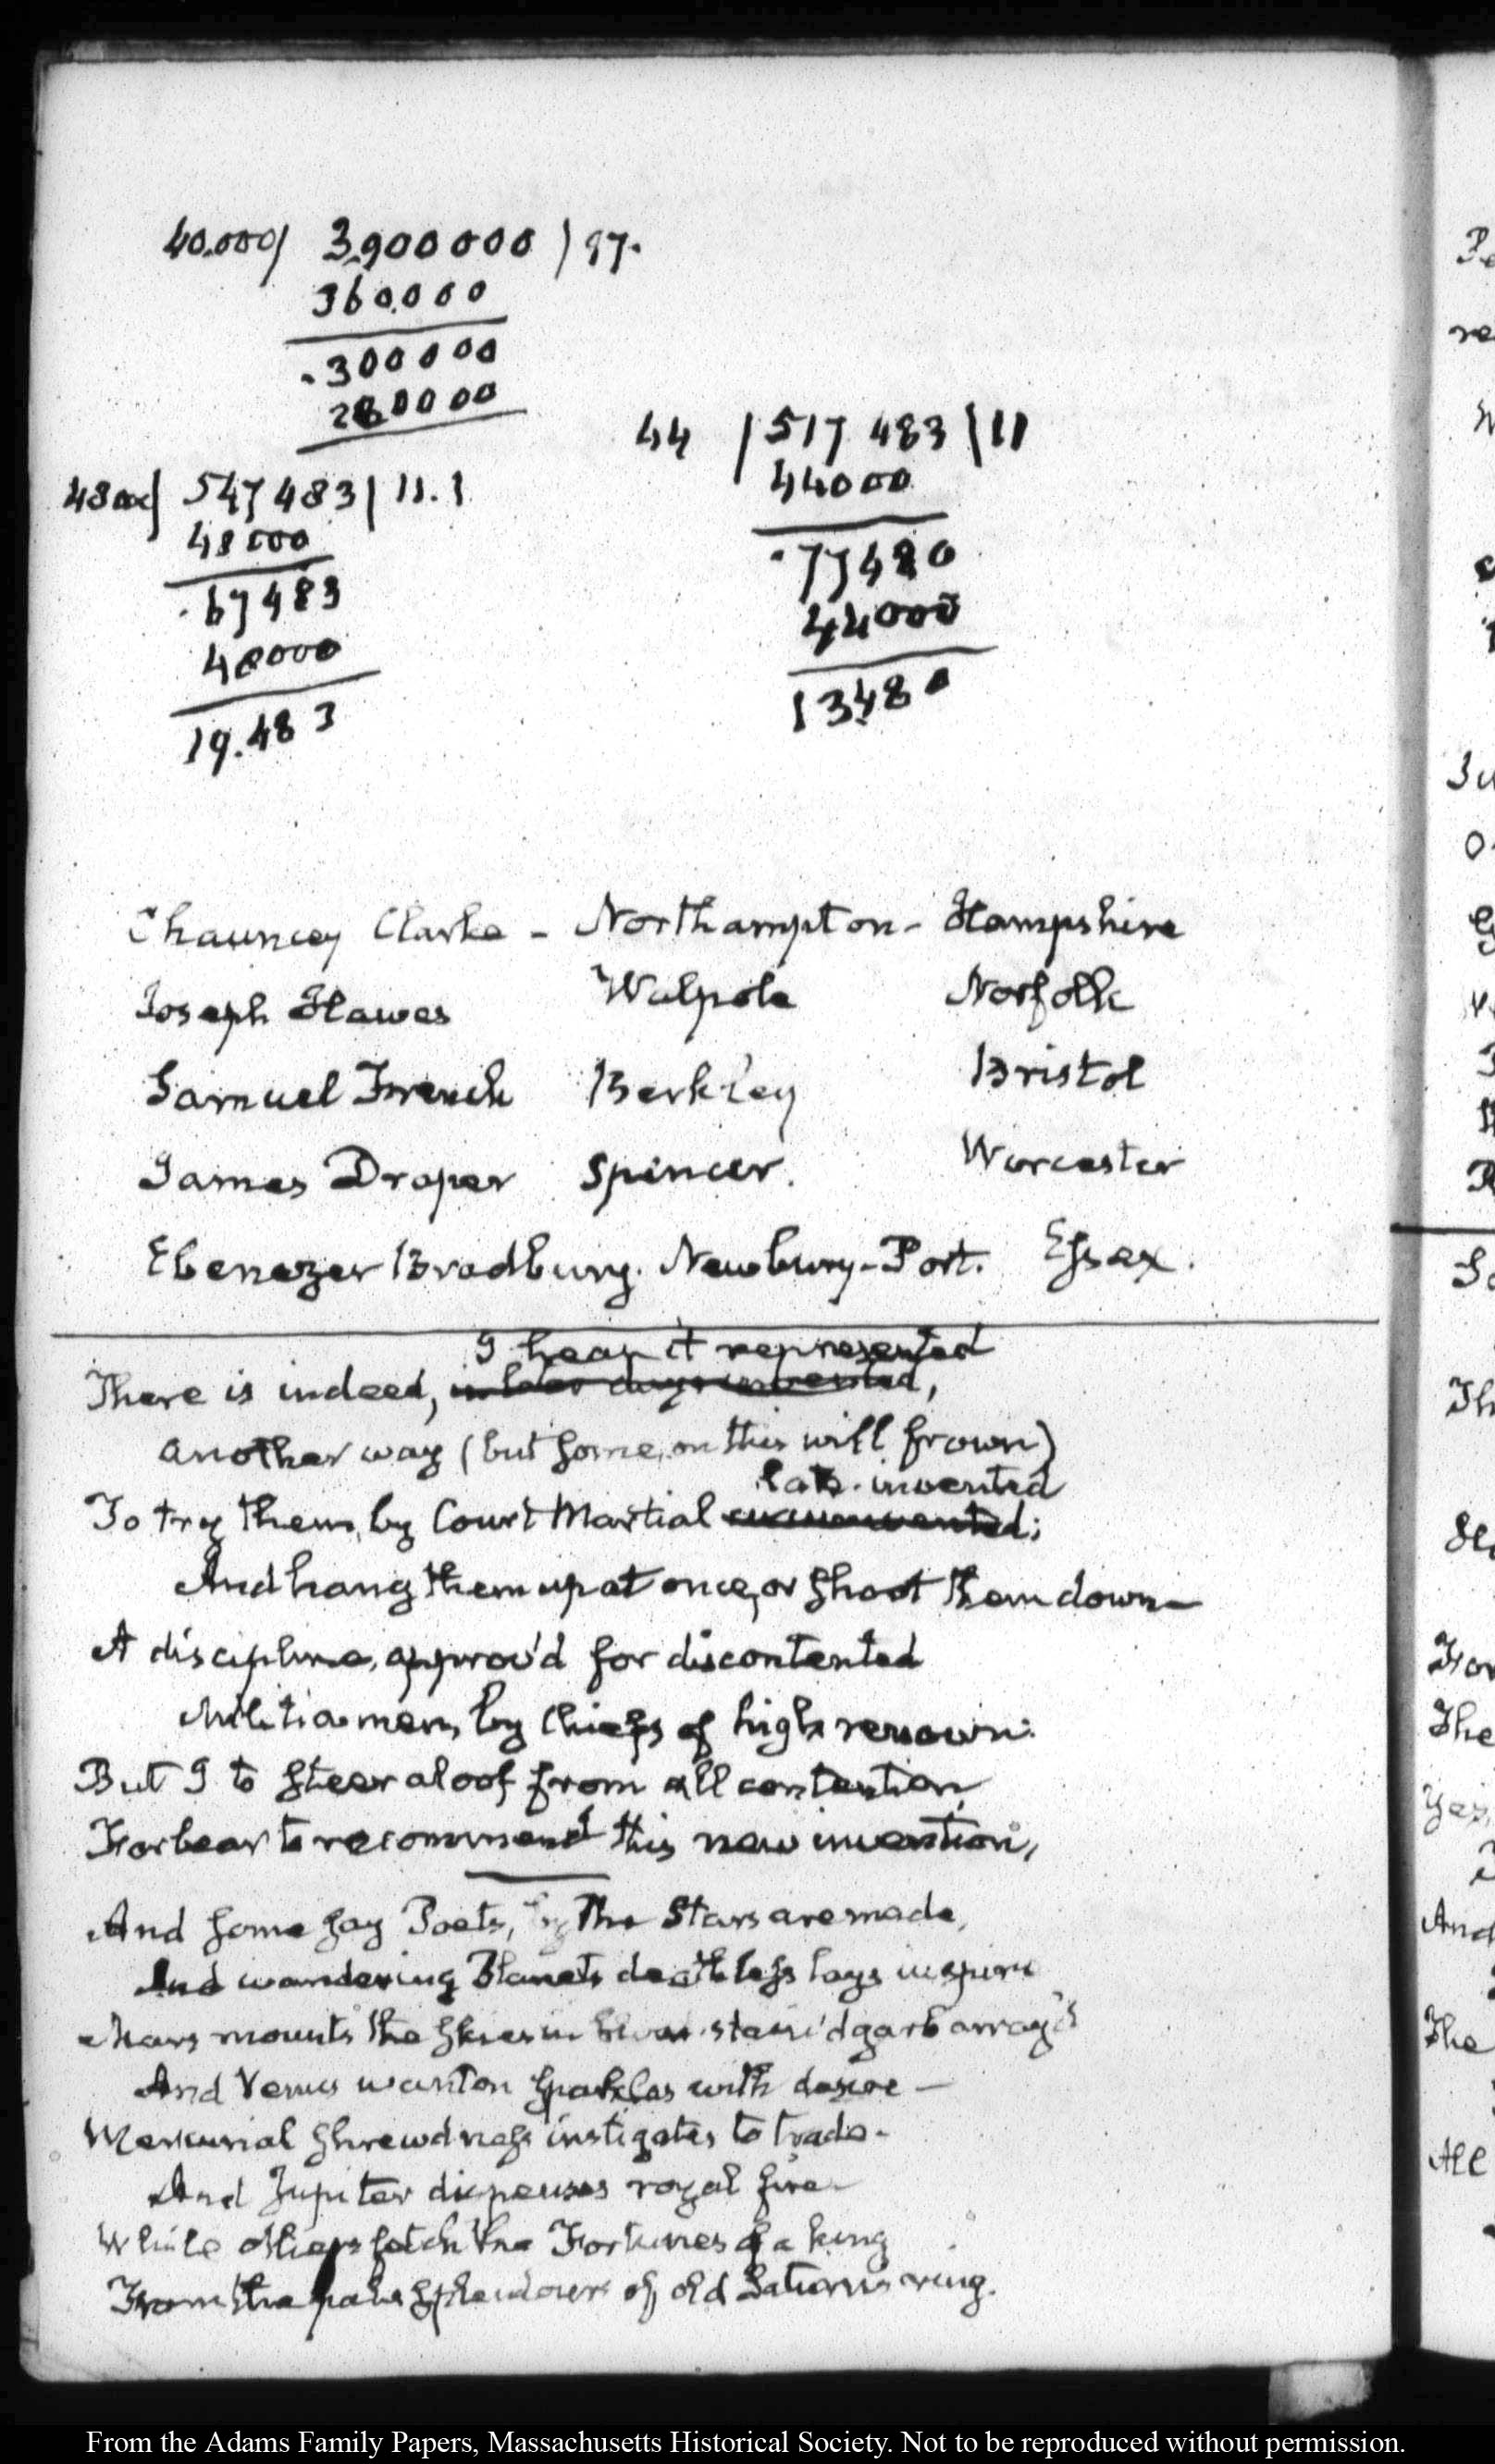 40.000/ 3,900000 ) 97.
360.000
300000
280000
44 / 517 483 \ 11
44000
77480
44000
13480
48000/ 547 483 / 11.1
48000
67483
48000
19.483
Chauncey Clarke - Northampton - Hampshire
Joseph Hawes Walpole Norfolk
Samuel French Berkley Bristol
James Draper Spencer. Worcester
Ebenezer Bradbury. Newbury-Port. Essex.
I hear it represented
There is indeed, in later days invented,
another way (but some, on this will frown)
late invented
To try them, by Court Martial
And hang them up at once, or shoot them down—
A discipline, approv'd for discontented
Militia men, by Chiefs of high renown:
But I to steer aloof from all contention,
Forbear to recommend this new invention,
And some say Poets, by The Stars are made,
And wandering Planets deathless lays inspire
Mars mounts the skies in blood-stain'd garb array'd
And Venus wanton sparkles with desire—
Mercurial shrewdness instigates to trade-
And Jupiter dispenses royal fire-
While others fetch the Fortunes of a king
From the pale splendours of old Saturn's ring.
From the Adams Family Papers, Massachusetts Historical Society. Not to be reproduced without permission.